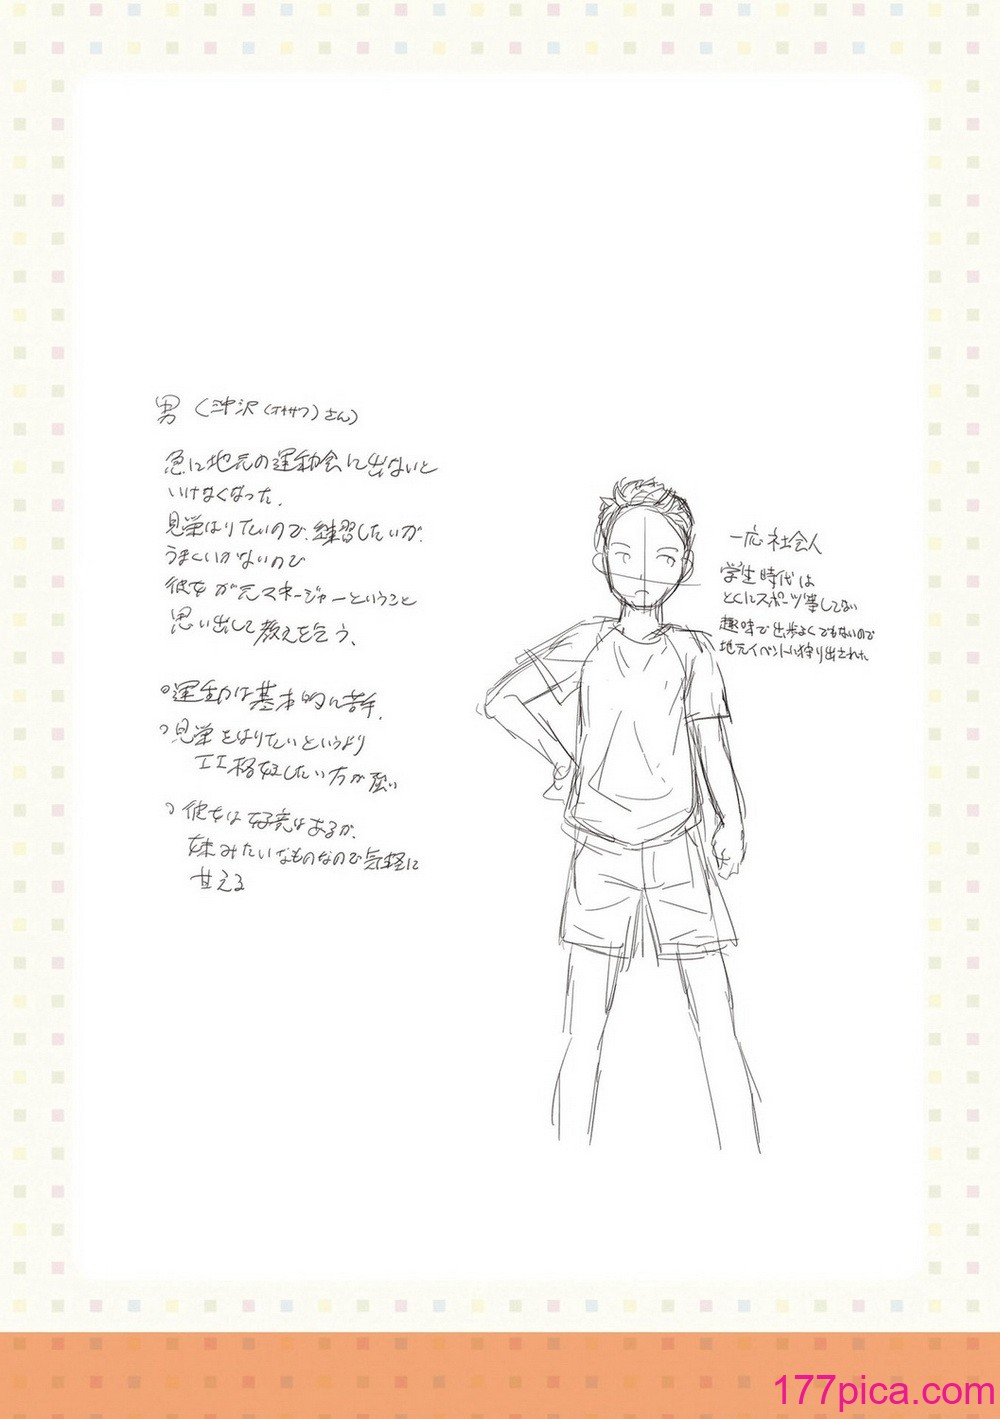 男（沖沢（オキサワ）さん）
急に地元の運動会に出ないと
いけなくなった。
見栄はりたいので、練習したいが、
うまくいかないので
彼女が元マネージャーということ
思い出して教えを乞う、
○運動は基本的に苦手。
○見栄をはりたいというより
エエ格好したい方が強い
○彼女は好意はあるが、
妹みたいなものなので気軽に
甘える
一応社会人
学生時代は
とくにスポーツ等してない
趣味で出歩よくでもないので
地元イベントに狩り出された
177pica.com